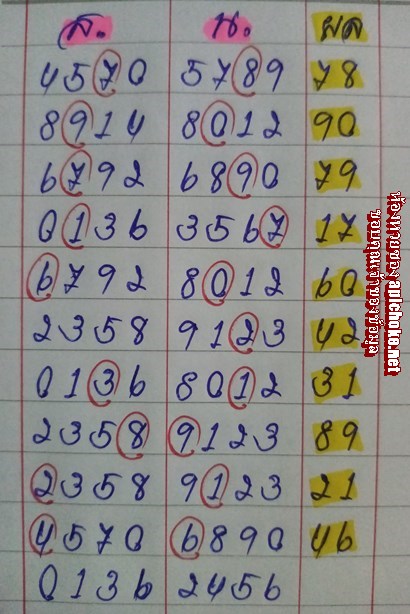 ส. น. ผล
4570 5789 78
8914 8012 90
6792 6890 79
0136 3567 17
6792 8012 60
2358 9123 42
0136 8012 31
2358 9123 89
2358 9123 21
4570 6890 46
0136 2456
ห้องหวยซอง aplchoke.net